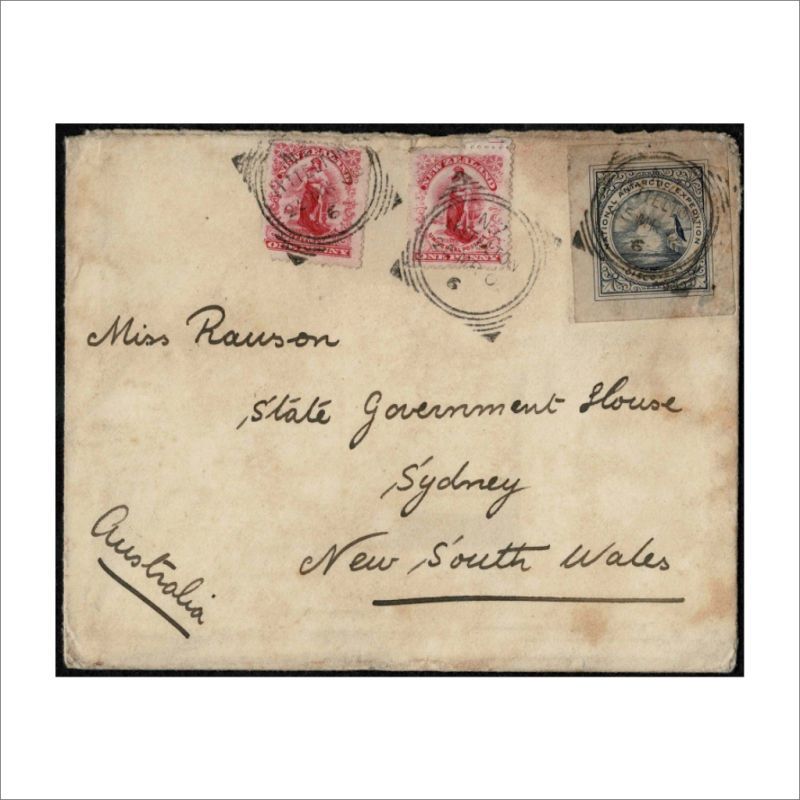 NEW ZEALAND
ONE PENNY
NEW ZEALAND
ONE PENNY
NATIONAL ANTARCTIC EXPEDITION
DISCOVERY
Miss Rawson
State Government House
Sydney
New South Wales
Australia